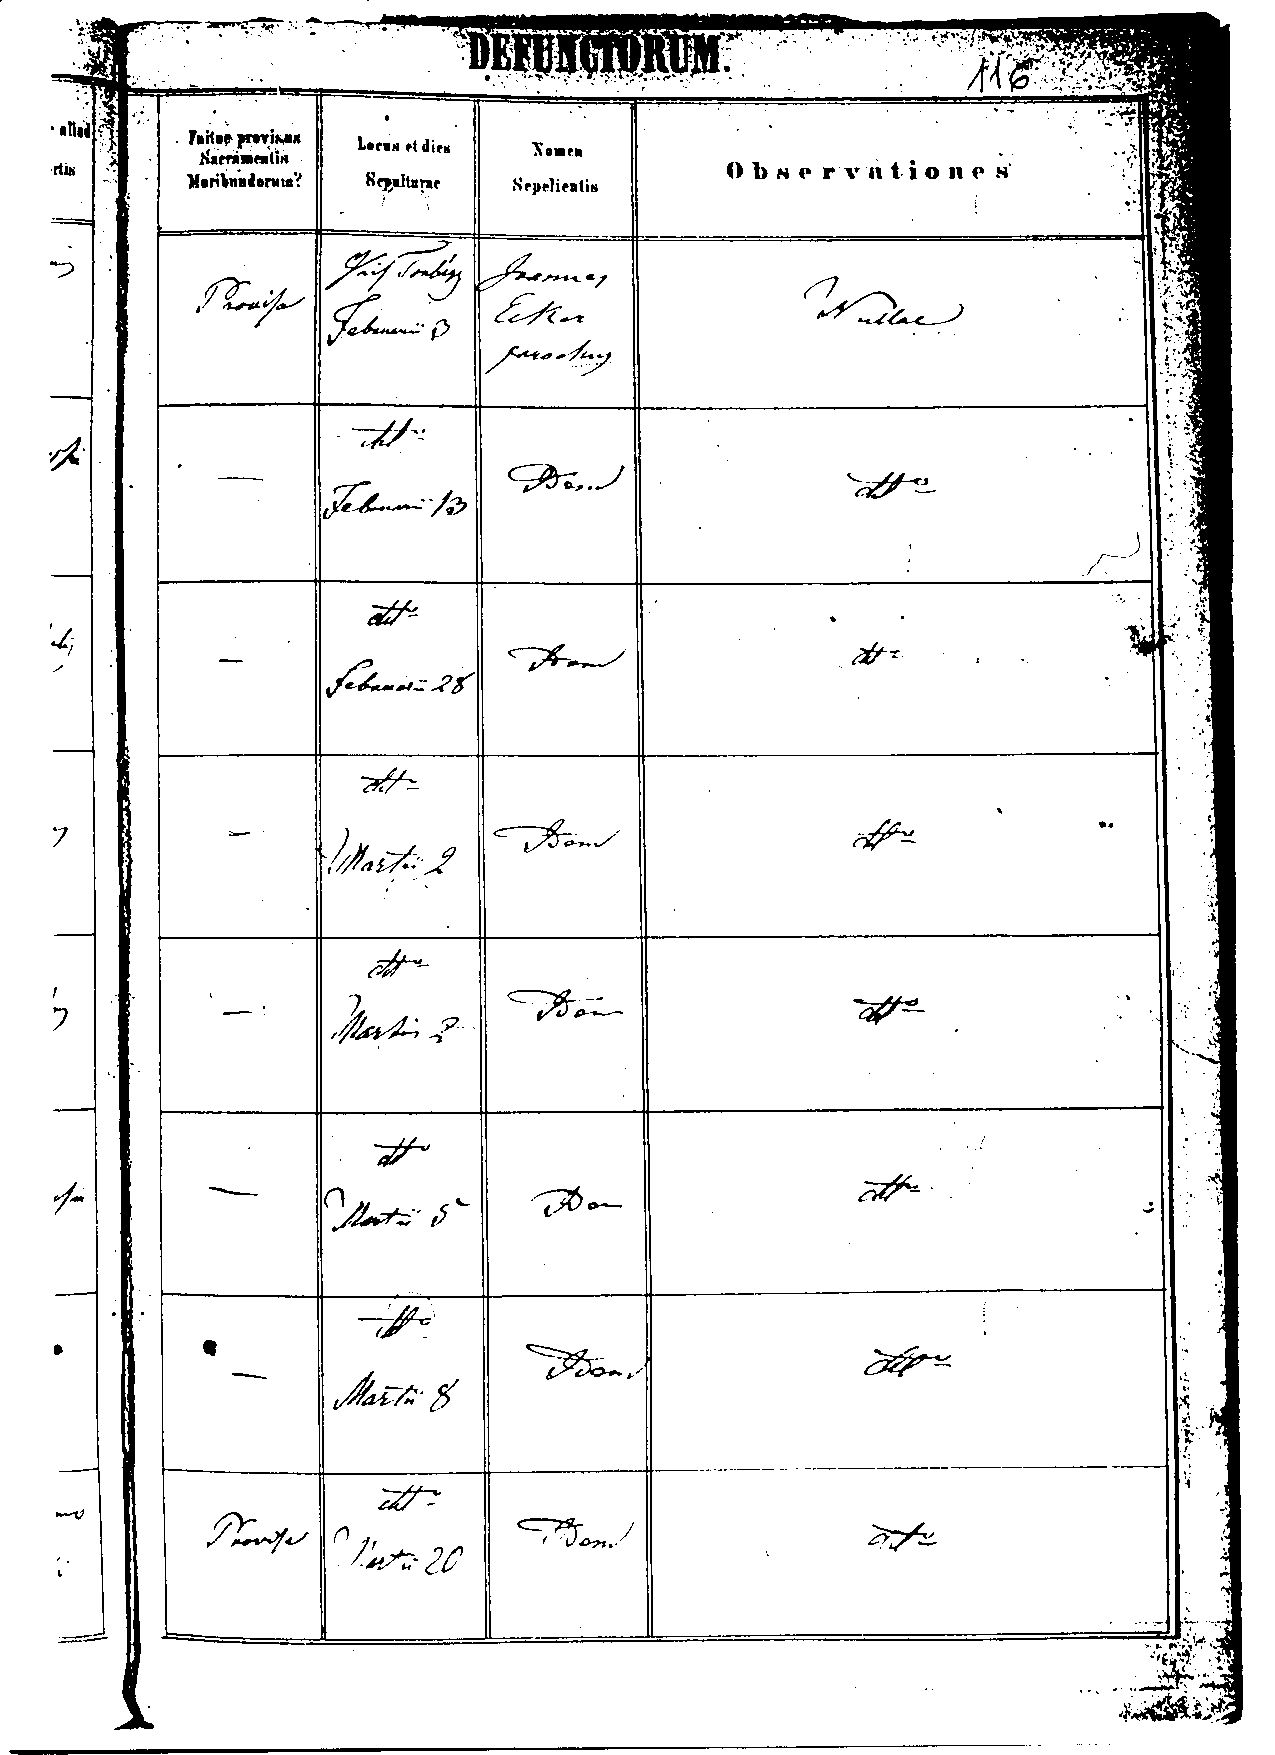 DEFUNCTORUM.
116
Fuitne provisus
Sacramentis
Moribundorum?
Locus et dies
Sepulturae
Nomen
Sepelientis
Observationes
Provisa
Februarii 3
Joannes
Ecker
parochus
Nullae
—
dtto
Februarii 13
Idem
dtto
—
dtto
Februarii 28
Idem
dtto
—
dtto
Martii 2
Idem
dtto
—
dtto
Martii
Idem
dtto
—
dtto
Martii 5
Idem
dtto
—
dtto
Martii 8
Idem
dtto
Provisa
dtto
Martii 20
Idem
dtto